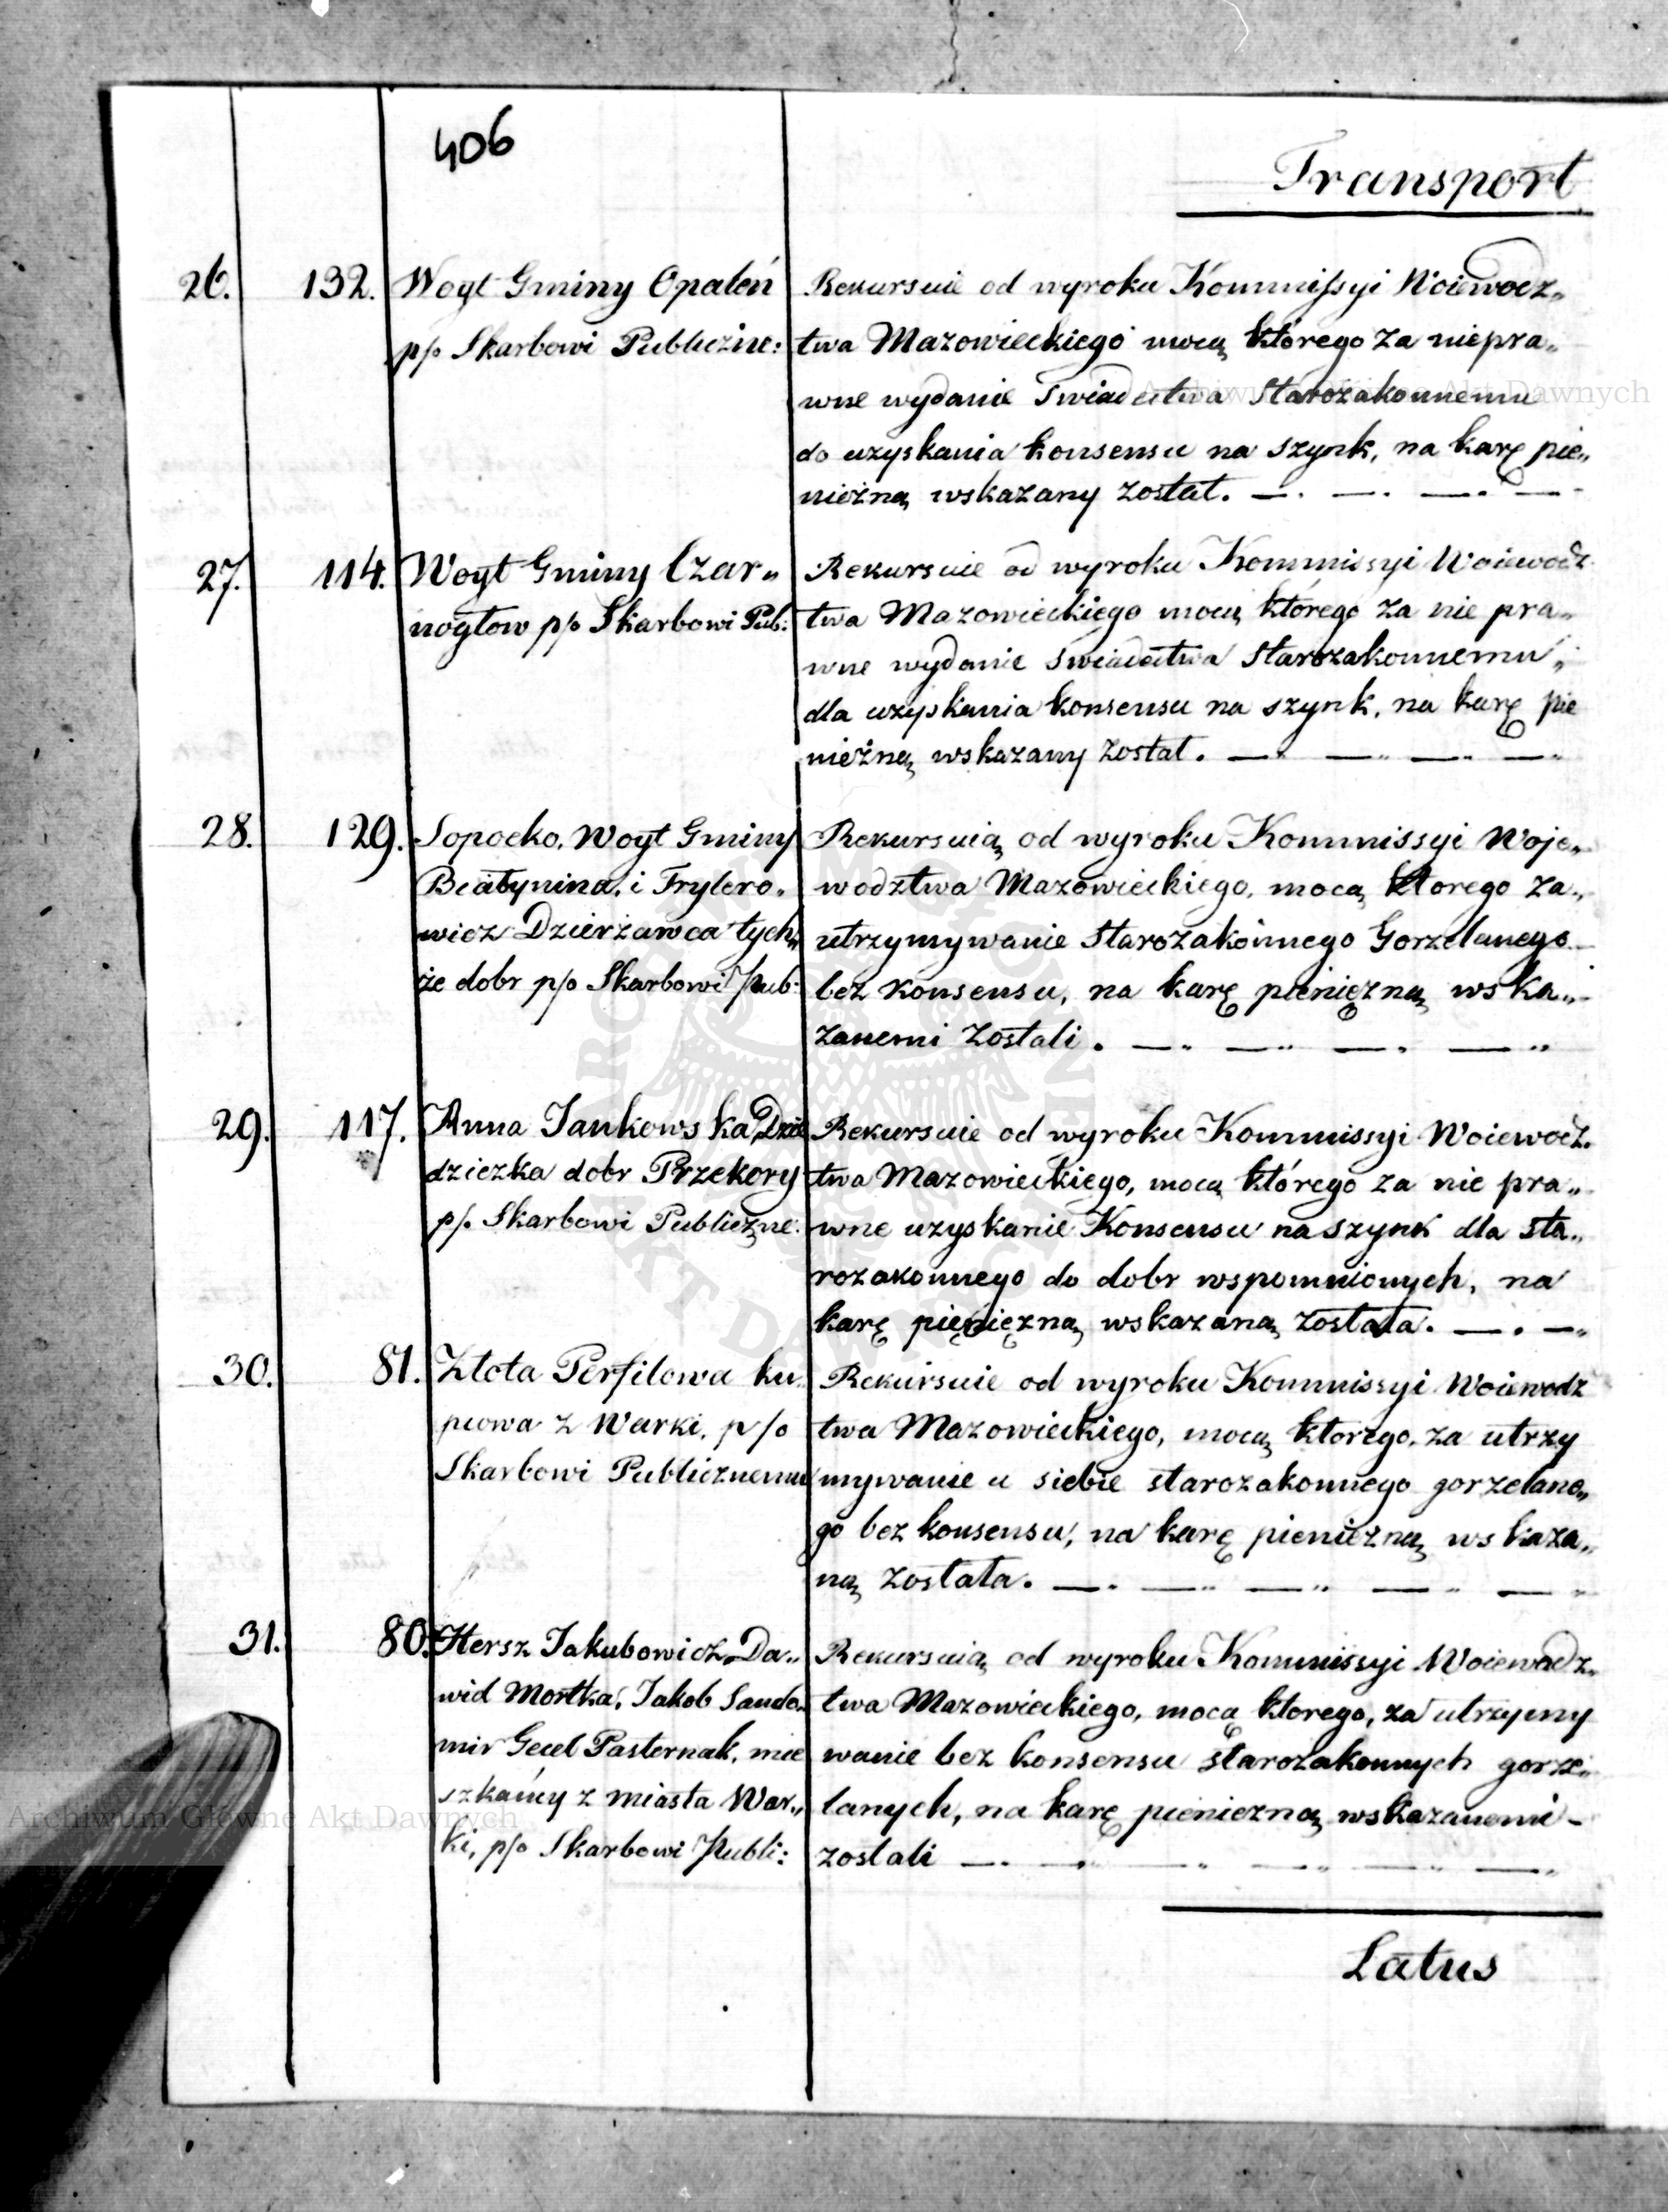 406
Transport
26. 132. Woyt Gminy Opaleń
p/o Skarbowi Publiczne:
Rekursuie od wyroku Kommissyi Woiewodz„
twa Mazowieckiego mocą którego za niepra„
wne wydanie Swiadectwa Starozakonnemu
do uzyskania konsensu na szynk, na karę pie„
nieżną wskazany został. —. —. —. —
27. 114. Woyt Gminy Czar„
nogłow p/o Skarbowi Pub:
Rekursuie od wyroku Kommissyi Woiewodz
twa Mazowieckiego mocą którego za nie pra„
wne wydanie Swiadectwa Starozakonnemu„
dla uzyskania konsensu na szynk, na karę pie
nieżną wskazany został. — — — —
28. 129. Sopocko, Woyt Gminy
Beatynina, i Frylero„
wicz Dzierżawca tych„
że dobr p/o Skarbowi Pub:
Rekursuią od wyroku Kommissyi Woje„
wodztwa Mazowieckiego, mocą ktorego za„
utrzymywanie Starozakonnego Gorzelanego
bez konsensu, na karę pienięzną wska„
zanemi zostali. — — — —
29. 117. Anna Jankowska Dzie
dziczka dobr Przekory
p/o Skarbowi Publiczne:
Rekursuie od wyroku Kommissyi Woiewodz.
twa Mazowieckiego, mocą którego za nie pra„
wne uzyskanie Konsensu na szynk dla sta„
rozakonnego do dobr wspomnionych, na
karę pienięzną wskazaną została. —. —
30. 81. Złota Perfilowa ku
pcowa z Warki, p/o
Skarbowi Publicznemu
Rekursuie od wyroku Kommissyi Woiewodz
twa Mazowieckiego, mocą ktorego, za utrzy
mywanie u siebie starozakonnego gorzelane„
go bez konsensu, na karę pieniezną wskaza„
ną została. — — — — —
31. 80. Hersz Jakubowicz, Da„
wid Mortka, Jakob Sando„
mir Gecel Pasternak, mie
szkańcy z miasta War„
ki, p/o Skarbowi Publi:
Rekursuią od wyroku Kommissyi Woiewodz„
twa Mazowieckiego, mocą ktorego, za utrzymy
wanie bez konsensu starozakonnych gorze„
lanych, na karę pieniezną wskazanemi -
zostali — — — — — —
Latus
Archiwum Główne Akt Dawnych
Archiwum Główne Akt Dawnych
ARCHIWUM GŁÓWNE AKT DAWNYCH